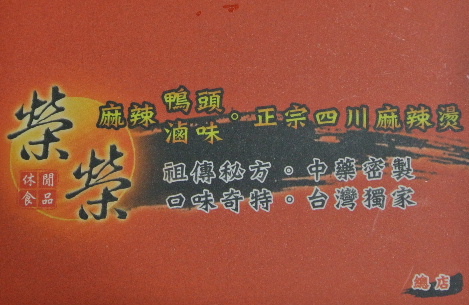 榮榮
休閒
食品
麻辣鴨頭滷味。正宗四川麻辣燙
祖傳秘方。中藥密製
口味奇特。台灣獨家
總店